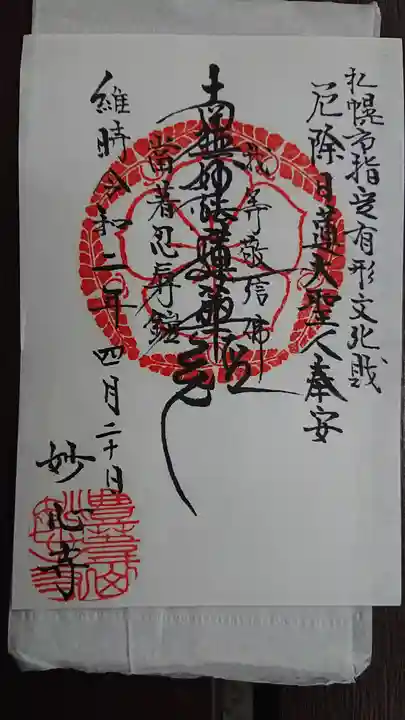 札幌市指定有形文化戝
厄除日蓮大聖人奉安
我等敬信佛
南無妙法蓮華経
當著忍辱鎧
維時令和二年四月二十日
妙心寺